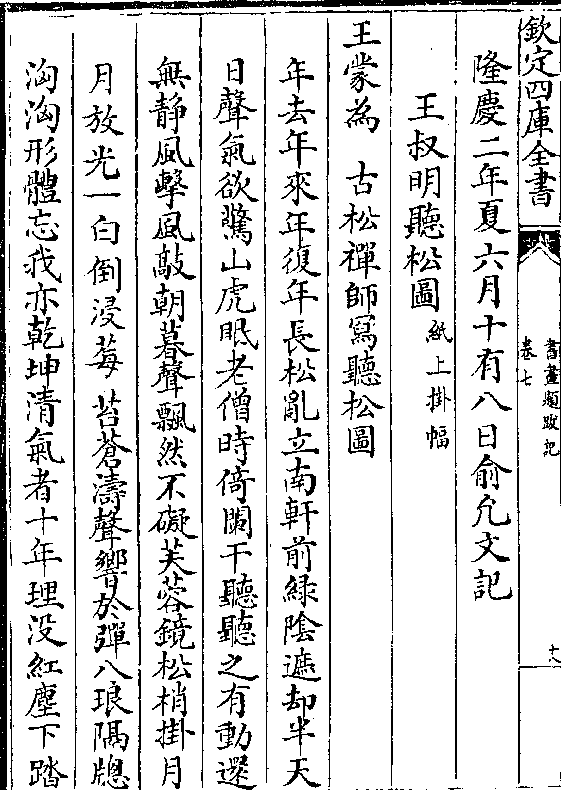 欽定四庫全書
書畫題跋記
卷七
十八
隆慶二年夏六月十有八日俞允文記
王叔明聽松圖 紙上掛幅
王蒙為 古松禪師寫聽松圖
年去年來年復年長松亂立南軒前緑隂遮却半天
日聲氣欲驚山虎眠老僧時倚闌干聽聽之有動還
無静風擊風敲朝暮聲飄然不礙芙蓉鏡松梢掛月
月放光一白倒浸莓苔蒼濤聲響於彈八琅隔牕
洶洶形體忘我亦乾坤清氣者十年理没紅塵下踏